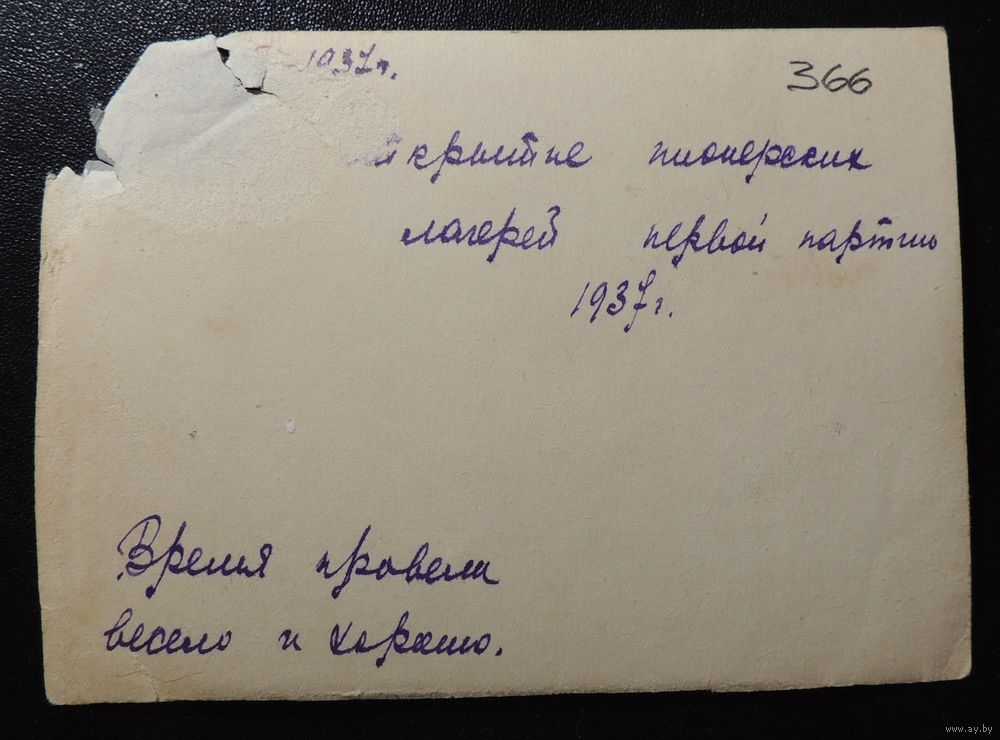 1937г.
366
крытие пионерских
лагерей первой партии
1937г.
Время провели
весело и хорошо.
www.ay.by